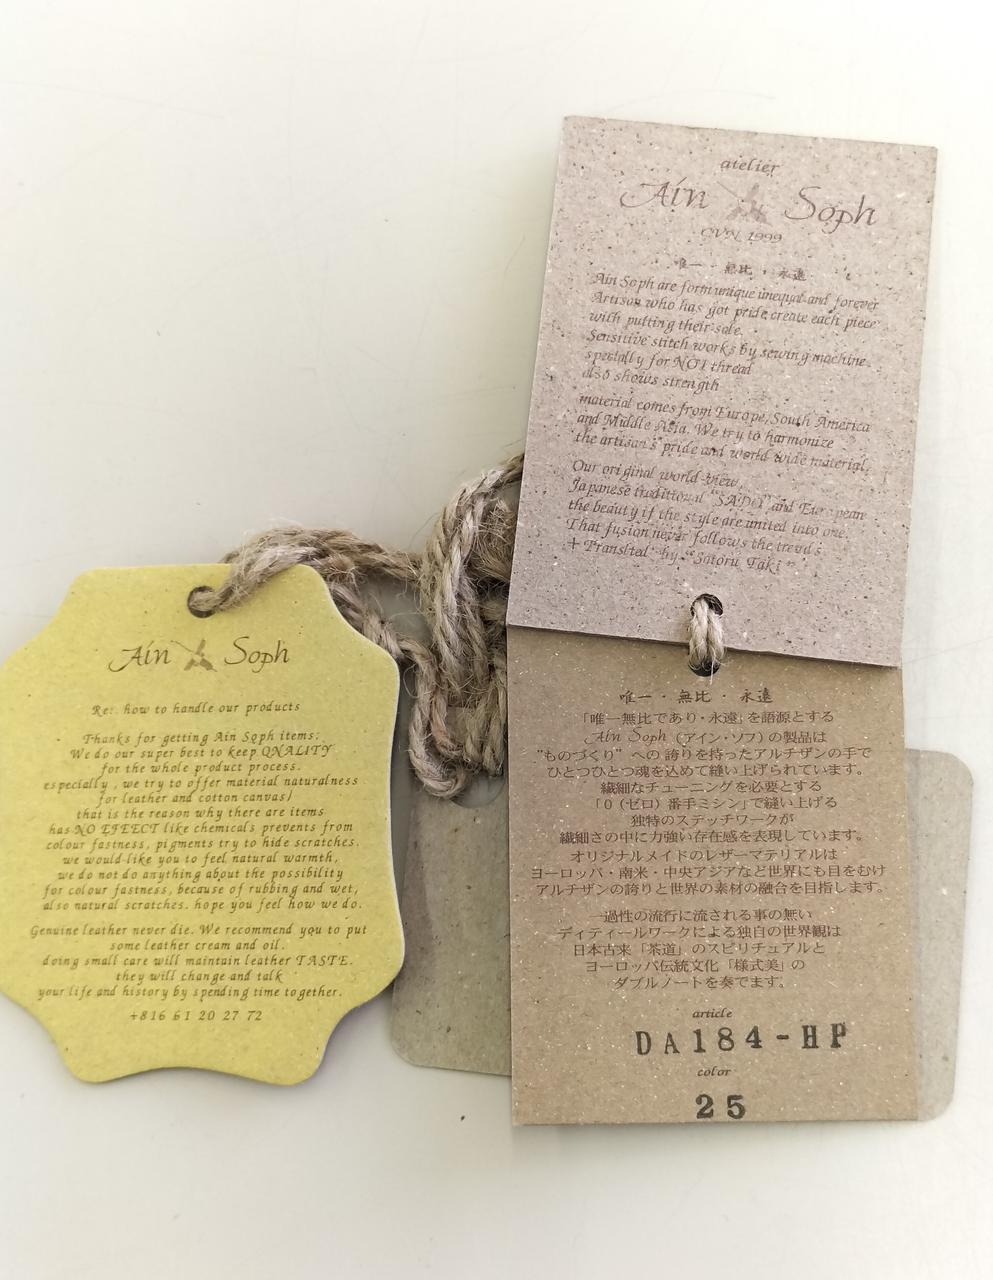 Ain Soph
Re: how to handle our products
Thanks for getting Ain Soph items.
We do our super best to keep QNALITY
for the whole product process.
especially, we try to offer material naturalness
for leather and cotton canvas)
that is the reason why there are items
has NO EFFECT like chemicals prevents from
colour fastness, pigments try to hide scratches.
we would like you to feel natural warmth,
we do not do anything about the possibility
for colour fastness, because of rubbing and wet,
also natural scratches. hope you feel how we do.
Genuine leather never die. We recommend you to put
some leather cream and oil.
doing small care will maintain leather TASTE.
they will change and talk
your life and history by spending time together.
+816 61 20 27 72
atelier
Ain Soph
CVN 1999
唯一・無比・永遠
Ain Soph are form unique unequal and forever
Artisan who has got pride create each piece
with putting their sole.
Sensitive stitch works by sewing machine
specially for NO1 thread
also shows strength
material comes from Europe, South America
and Middle Asia. We try to harmonize
the artisan's pride and world wide material.
Our original world-view,
Japanese traditional "SADO" and European
the beauty if the style are united into one.
That fusion never follows the trends
+ Translted by "Satoru Taki"
唯一・無比・永遠
「唯一無比であり・永遠」を語源とする
Ain Soph (アイン・ソフ) の製品は
"ものづくり" への誇りを持ったアルチザンの手で
ひとつひとつ魂を込めて縫い上げられています。
繊細なチューニングを必要とする
「0 (ゼロ) 番手ミシン」で縫い上げる
独特のステッチワークが
繊細さの中に力強い存在感を表現しています。
オリジナルメイドのレザーマテリアルは
ヨーロッパ・南米・中央アジアなど世界にも目をむけ
アルチザンの誇りと世界の素材の融合を目指します。
一過性の流行に流される事の無い
ディティールワークによる独自の世界観は
日本古来「茶道」のスピリチュアルと
ヨーロッパ伝統文化「様式美」の
ダブルノートを奏でます。
article
DA184-HP
color
25